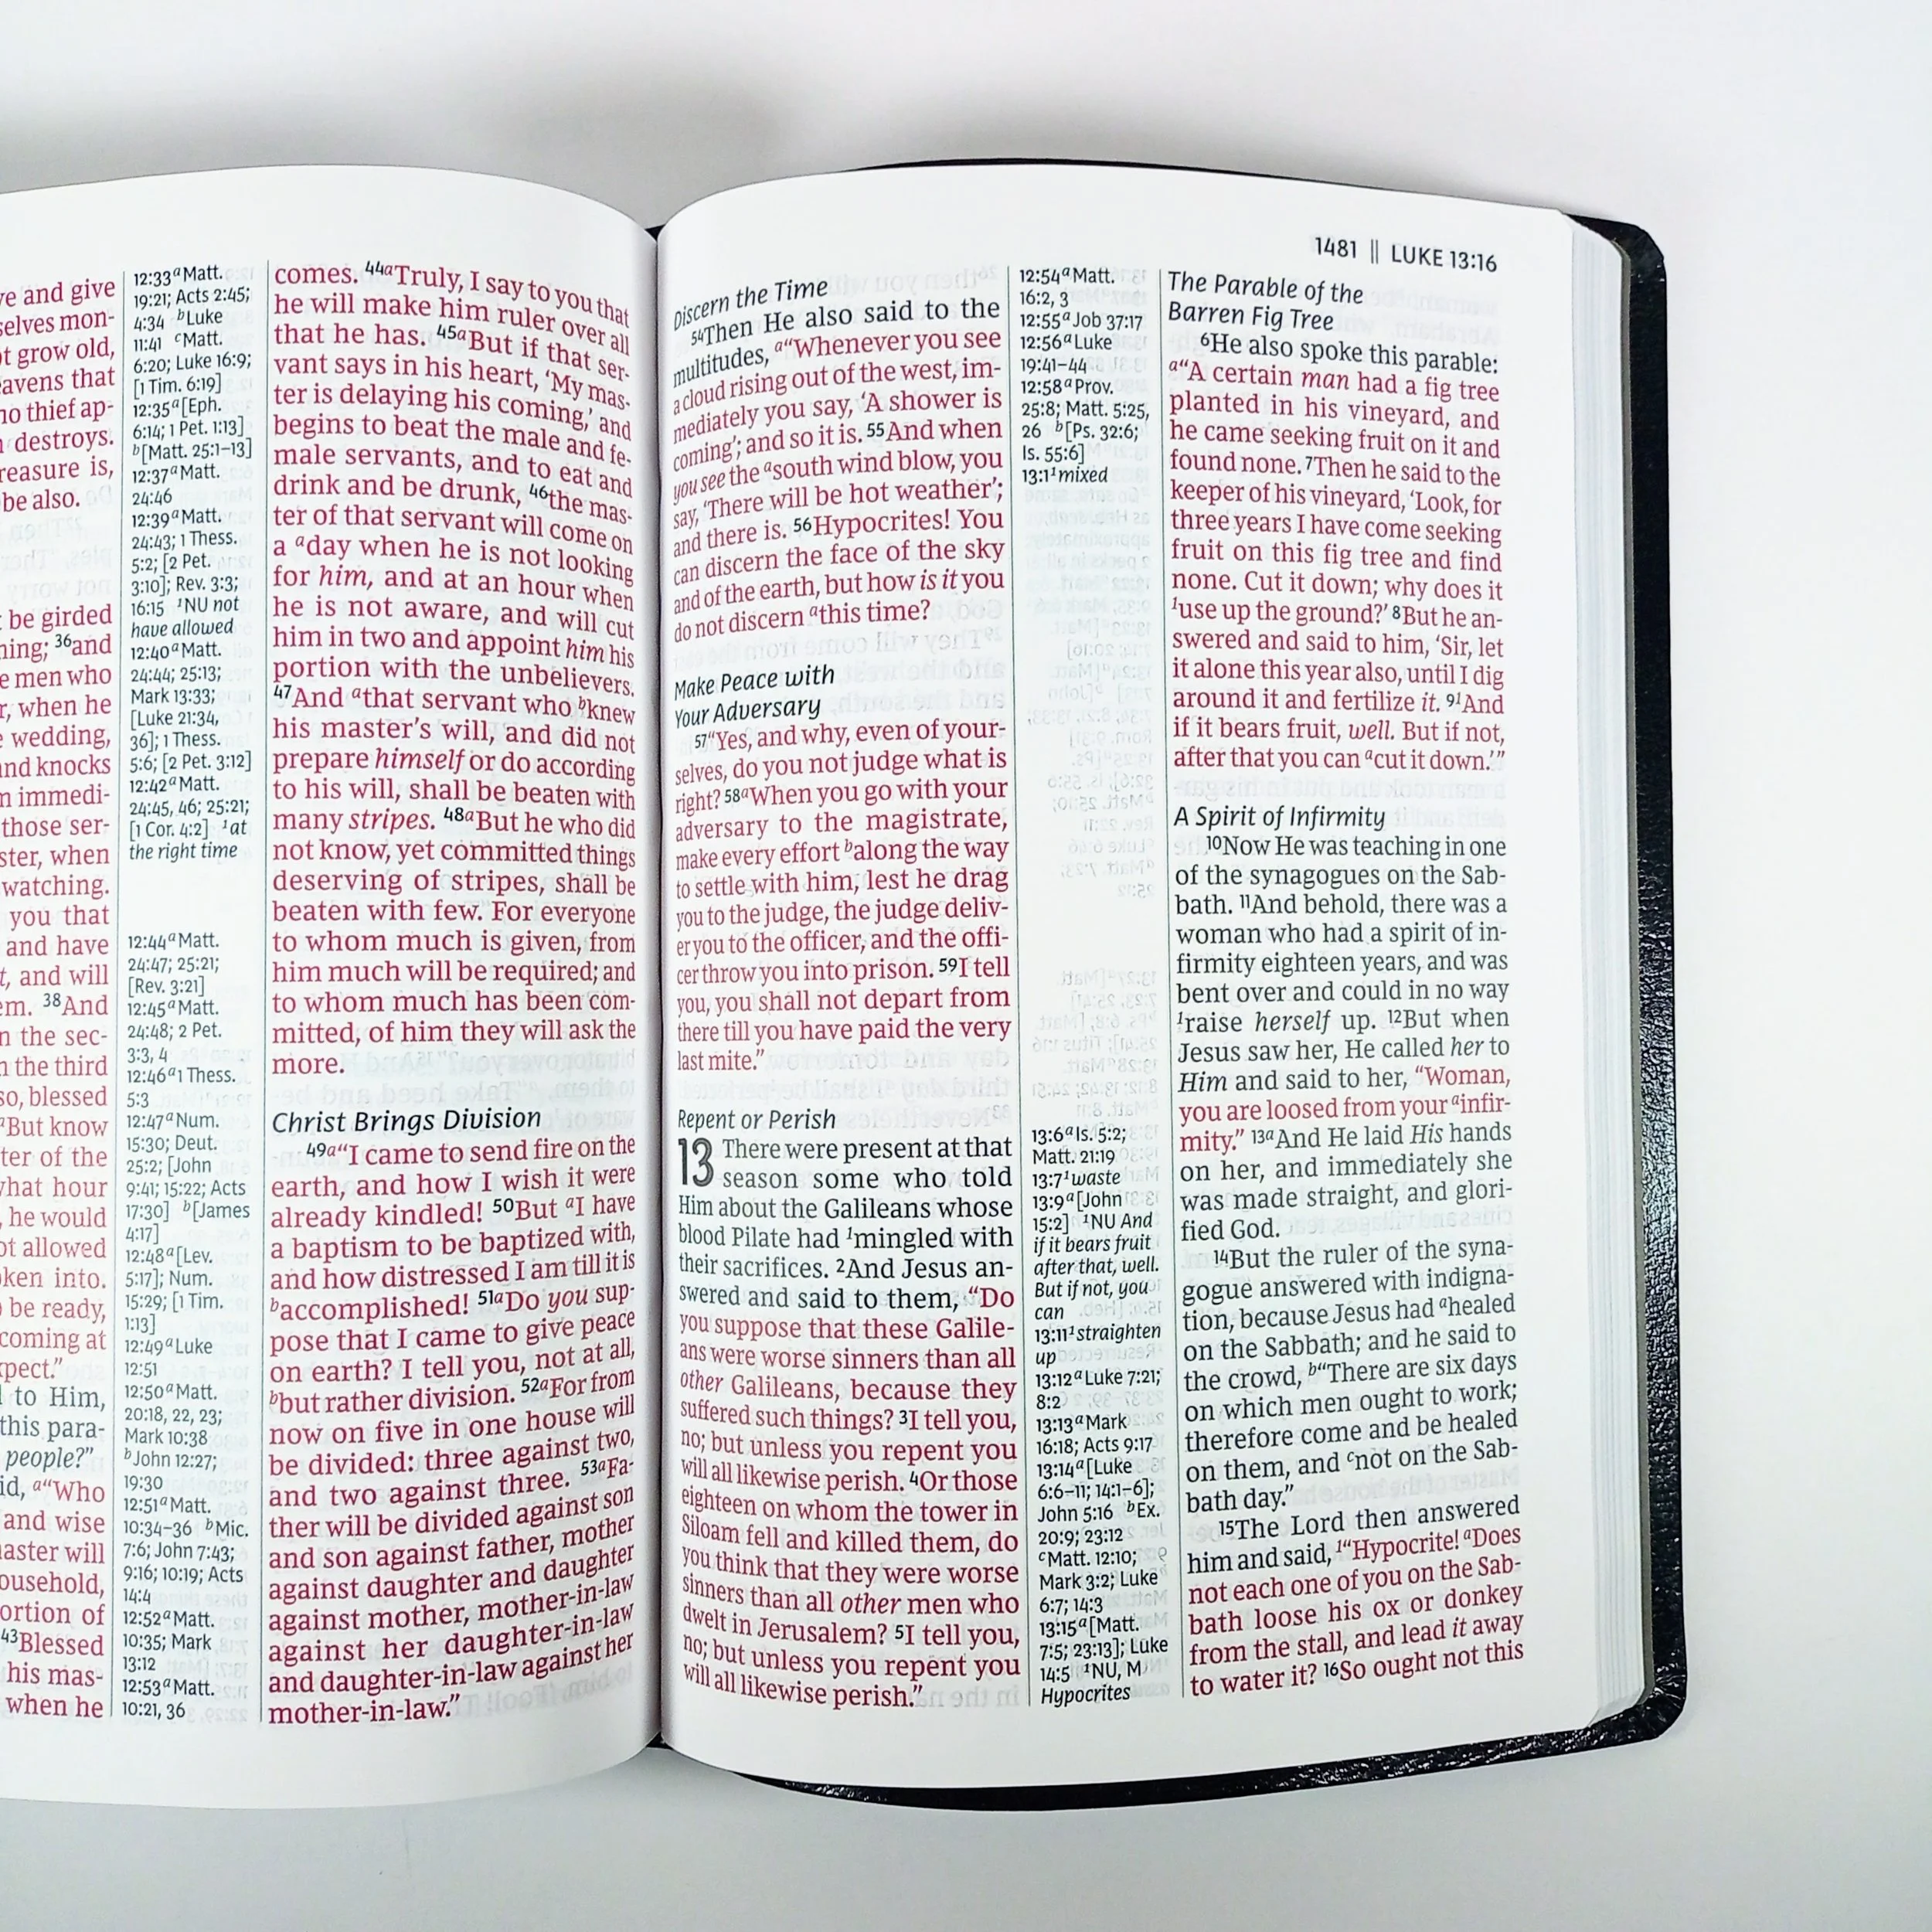 ve and give
selves mon-
ot grow old,
avens that
no thief ap-
destroys.
reasure is,
be also.
be girded
ning; 36and
e men who
r, when he
wedding,
and knocks
immedi-
those ser-
ster, when
watching.
you that
and have
t, and will
em. 38And
n the sec-
the third
so, blessed
aBut know
ter of the
what hour
, he would
ot allowed
ken into.
be ready,
coming at
xpect."
to Him,
this para-
people?"
id, a"Who
and wise
aster will
ousehold,
ortion of
43Blessed
his mas-
when he
12:33 a Matt.
19:21; Acts 2:45;
4:34 b Luke
11:41 c Matt.
6:20; Luke 16:9;
[1 Tim. 6:19]
12:35 a [Eph.
6:14; 1 Pet. 1:13]
b [Matt. 25:1–13]
12:37 a Matt.
24:46
12:39 a Matt.
24:43; 1 Thess.
5:2; [2 Pet.
3:10]; Rev. 3:3;
16:15 1NU not
have allowed
12:40 a Matt.
24:44; 25:13;
Mark 13:33;
[Luke 21:34,
36]; 1 Thess.
5:6; [2 Pet. 3:12]
12:42 a Matt.
24:45, 46; 25:21;
[1 Cor. 4:2] 1at
the right time
12:44 a Matt.
24:47; 25:21;
[Rev. 3:21]
12:45 a Matt.
24:48; 2 Pet.
3:3, 4
12:46 a 1 Thess.
5:3
12:47 a Num.
15:30; Deut.
25:2; [John
9:41; 15:22; Acts
17:30] b [James
4:17]
12:48 a [Lev.
5:17]; Num.
15:29; [1 Tim.
1:13]
12:49 a Luke
12:51
12:50 a Matt.
20:18, 22, 23;
Mark 10:38
b John 12:27;
19:30
12:51 a Matt.
10:34–36 b Mic.
7:6; John 7:43;
9:16; 10:19; Acts
14:4
12:52 a Matt.
10:35; Mark
13:12
12:53 a Matt.
10:21, 36
comes. 44aTruly, I say to you that
he will make him ruler over all
that he has. 45aBut if that ser-
vant says in his heart, 'My mas-
ter is delaying his coming,' and
begins to beat the male and fe-
male servants, and to eat and
drink and be drunk, 46the mas-
ter of that servant will come on
a aday when he is not looking
for him, and at an hour when
he is not aware, and will cut
him in two and appoint him his
portion with the unbelievers.
47And athat servant who bknew
his master's will, and did not
prepare himself or do according
to his will, shall be beaten with
many stripes. 48aBut he who did
not know, yet committed things
deserving of stripes, shall be
beaten with few. For everyone
to whom much is given, from
him much will be required; and
to whom much has been com-
mitted, of him they will ask the
more.
Christ Brings Division
49a"I came to send fire on the
earth, and how I wish it were
already kindled! 50But aI have
a baptism to be baptized with,
and how distressed I am till it is
baccomplished! 51aDo you sup-
pose that I came to give peace
on earth? I tell you, not at all,
bbut rather division. 52aFor from
now on five in one house will
be divided: three against two,
and two against three. 53aFa-
ther will be divided against son
and son against father, mother
against daughter and daughter
against mother, mother-in-law
against her daughter-in-law
and daughter-in-law against her
mother-in-law."
1481 || LUKE 13:16
Discern the Time
54Then He also said to the
multitudes, a"Whenever you see
a cloud rising out of the west, im-
mediately you say, 'A shower is
coming'; and so it is. 55And when
you see the asouth wind blow, you
say, 'There will be hot weather';
and there is. 56Hypocrites! You
can discern the face of the sky
and of the earth, but how is it you
do not discern athis time?
Make Peace with
Your Adversary
57"Yes, and why, even of your-
selves, do you not judge what is
right? 58aWhen you go with your
adversary to the magistrate,
make every effort balong the way
to settle with him, lest he drag
you to the judge, the judge deliv-
er you to the officer, and the offi-
cer throw you into prison. 59I tell
you, you shall not depart from
there till you have paid the very
last mite."
Repent or Perish
13 There were present at that
season some who told
Him about the Galileans whose
blood Pilate had 1mingled with
their sacrifices. 2And Jesus an-
swered and said to them, "Do
you suppose that these Galile-
ans were worse sinners than all
other Galileans, because they
suffered such things? 3I tell you,
no; but unless you repent you
will all likewise perish. 4Or those
eighteen on whom the tower in
Siloam fell and killed them, do
you think that they were worse
sinners than all other men who
dwelt in Jerusalem? 5I tell you,
no; but unless you repent you
will all likewise perish."
12:54 a Matt.
16:2, 3
12:55 a Job 37:17
12:56 a Luke
19:41–44
12:58 a Prov.
25:8; Matt. 5:25,
26 b [Ps. 32:6;
Is. 55:6]
13:1 1mixed
13:6 a Is. 5:2;
Matt. 21:19
13:7 1waste
13:9 a [John
15:2] 1NU And
if it bears fruit
after that, well.
But if not, you
can
13:11 1straighten
up
13:12 a Luke 7:21;
8:2
13:13 a Mark
16:18; Acts 9:17
13:14 a [Luke
6:6–11; 14:1–6];
John 5:16 b Ex.
20:9; 23:12
c Matt. 12:10;
Mark 3:2; Luke
6:7; 14:3
13:15 a [Matt.
7:5; 23:13]; Luke
14:5 1NU, M
Hypocrites
The Parable of the
Barren Fig Tree
6He also spoke this parable:
a"A certain man had a fig tree
planted in his vineyard, and
he came seeking fruit on it and
found none. 7Then he said to the
keeper of his vineyard, 'Look, for
three years I have come seeking
fruit on this fig tree and find
none. Cut it down; why does it
1use up the ground?' 8But he an-
swered and said to him, 'Sir, let
it alone this year also, until I dig
around it and fertilize it. 91And
if it bears fruit, well. But if not,
after that you can acut it down.'"
A Spirit of Infirmity
10Now He was teaching in one
of the synagogues on the Sab-
bath. 11And behold, there was a
woman who had a spirit of in-
firmity eighteen years, and was
bent over and could in no way
1raise herself up. 12But when
Jesus saw her, He called her to
Him and said to her, "Woman,
you are loosed from your ainfir-
mity." 13aAnd He laid His hands
on her, and immediately she
was made straight, and glori-
fied God.
14But the ruler of the syna-
gogue answered with indigna-
tion, because Jesus had ahealed
on the Sabbath; and he said to
the crowd, b"There are six days
on which men ought to work;
therefore come and be healed
on them, and cnot on the Sab-
bath day."
15The Lord then answered
him and said, 1"Hypocrite! aDoes
not each one of you on the Sab-
bath loose his ox or donkey
from the stall, and lead it away
to water it? 16So ought not this